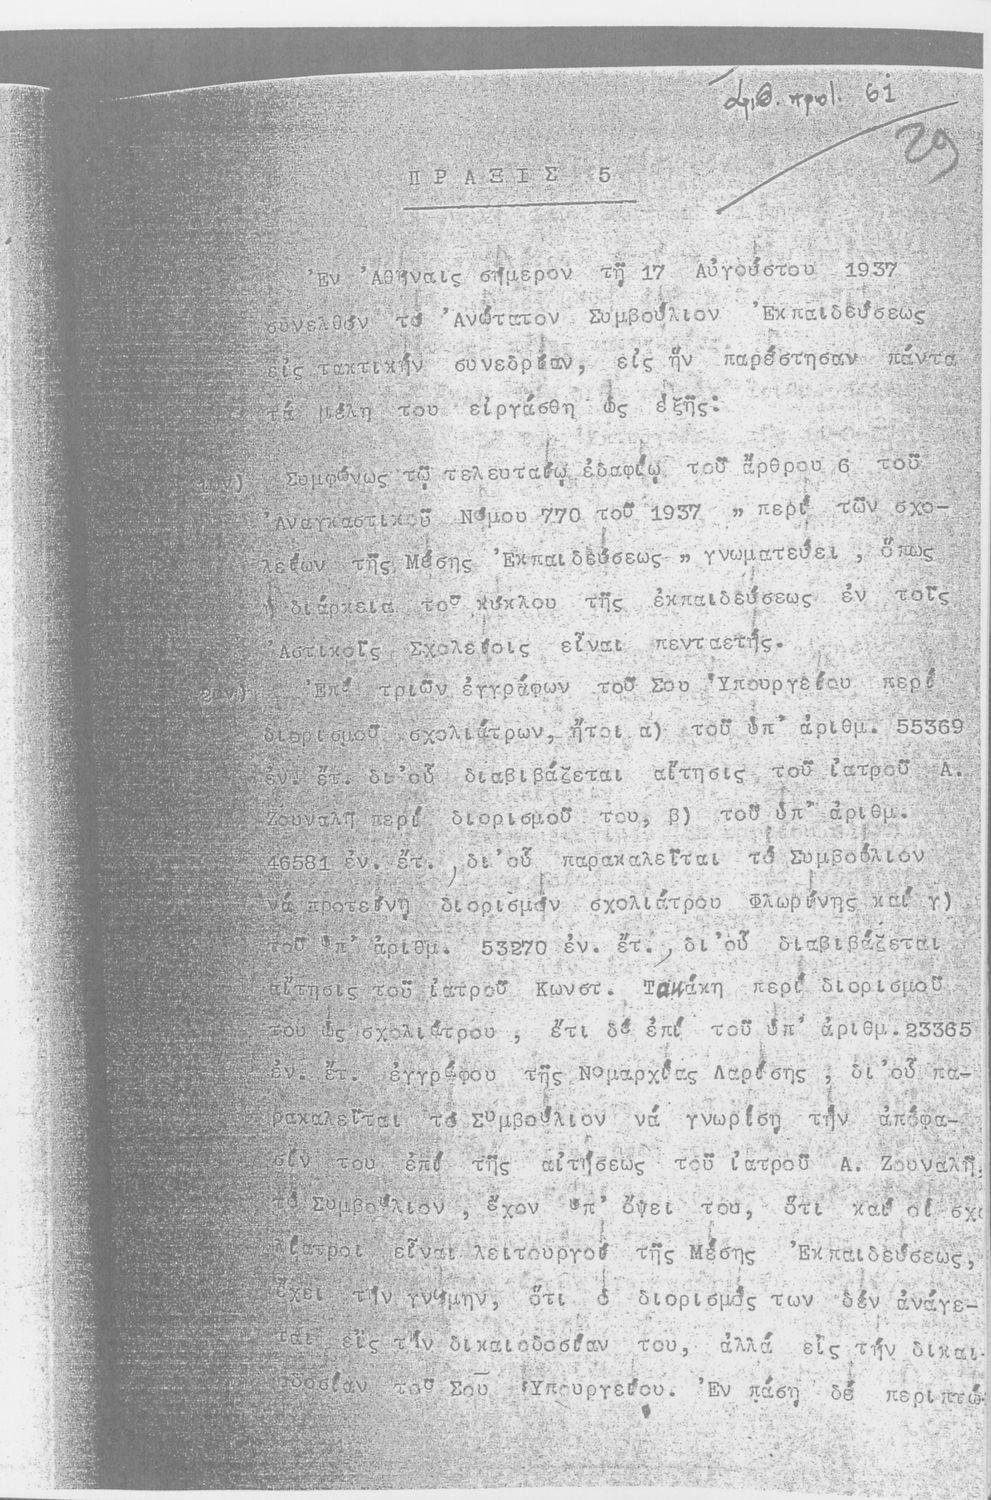 Αριθ. πρωτ. 61
29
ΠΡΑΞΙΣ 5
Ἐν Ἀθήναις σήμερον τῇ 17 Αὐγούστου 1937
συνελθόν τό Ἀνώτατον Συμβούλιον Ἐκπαιδεύσεως
εἰς τακτικήν συνεδρίαν, εἰς ἥν παρέστησαν πάντα
τά μέλη του εἰργάσθη ὡς ἑξῆς:
1ον) Συμφώνως τῷ τελευταίῳ ἐδαφίῳ τοῦ ἄρθρου 6 τοῦ
Ἀναγκαστικοῦ Νόμου 770 τοῦ 1937 „ περί τῶν σχο-
λείων τῆς Μέσης Ἐκπαιδεύσεως „ γνωματεύει , ὅπως
ἡ διάρκεια τοῦ κύκλου τῆς ἐκπαιδεύσεως ἐν τοῖς
Ἀστικοῖς Σχολείοις εἶναι πενταετής.
2ον) Ἐπί τριῶν ἐγγράφων τοῦ Σου Ὑπουργείου περί
διορισμοῦ σχολιάτρων, ἤτοι α) τοῦ ὑπ' ἀριθμ. 55369
ἐν. ἔτ. δι'οὗ διαβιβάζεται αἴτησις τοῦ ἰατροῦ Α.
Ζουναλῆ περί διορισμοῦ του, β) τοῦ ὑπ' ἀριθμ.
46581 ἐν. ἔτ. , δι'οὗ παρακαλεῖται τό Συμβούλιον
νά προτείνῃ διορισμόν σχολιάτρου Φλωρίνης καί γ)
τοῦ ὑπ' ἀριθμ. 53270 ἐν. ἔτ., δι'οὗ διαβιβάζεται
αἴτησις τοῦ ἰατροῦ Κωνστ. Τακάκη περί διορισμοῦ
του ὡς σχολιάτρου , ἔτι δέ ἐπί τοῦ ὑπ' ἀριθμ.23365
ἐν. ἔτ. ἐγγράφου τῆς Νομαρχίας Λαρίσης , δι'οὗ πα-
ρακαλεῖται τό Συμβούλιον νά γνωρίσῃ τήν ἀπόφα-
σίν του ἐπί τῆς αἰτήσεως τοῦ ἰατροῦ Α. Ζουναλῆ,
τό Συμβούλιον , ἔχον ὑπ' ὄψει του, ὅτι καί οἱ σχο
λίατροι εἶναι λειτουργοί τῆς Μέσης Ἐκπαιδεύσεως,
ἔχει τήν γνώμην, ὅτι ὁ διορισμός των δέν ἀνάγε-
ται εἰς τήν δικαιοδοσίαν του, ἀλλά εἰς τήν δικαι-
οδοσίαν τοῦ Σοῦ Ὑπουργείου. Ἐν πάσῃ δέ περιπτώ-